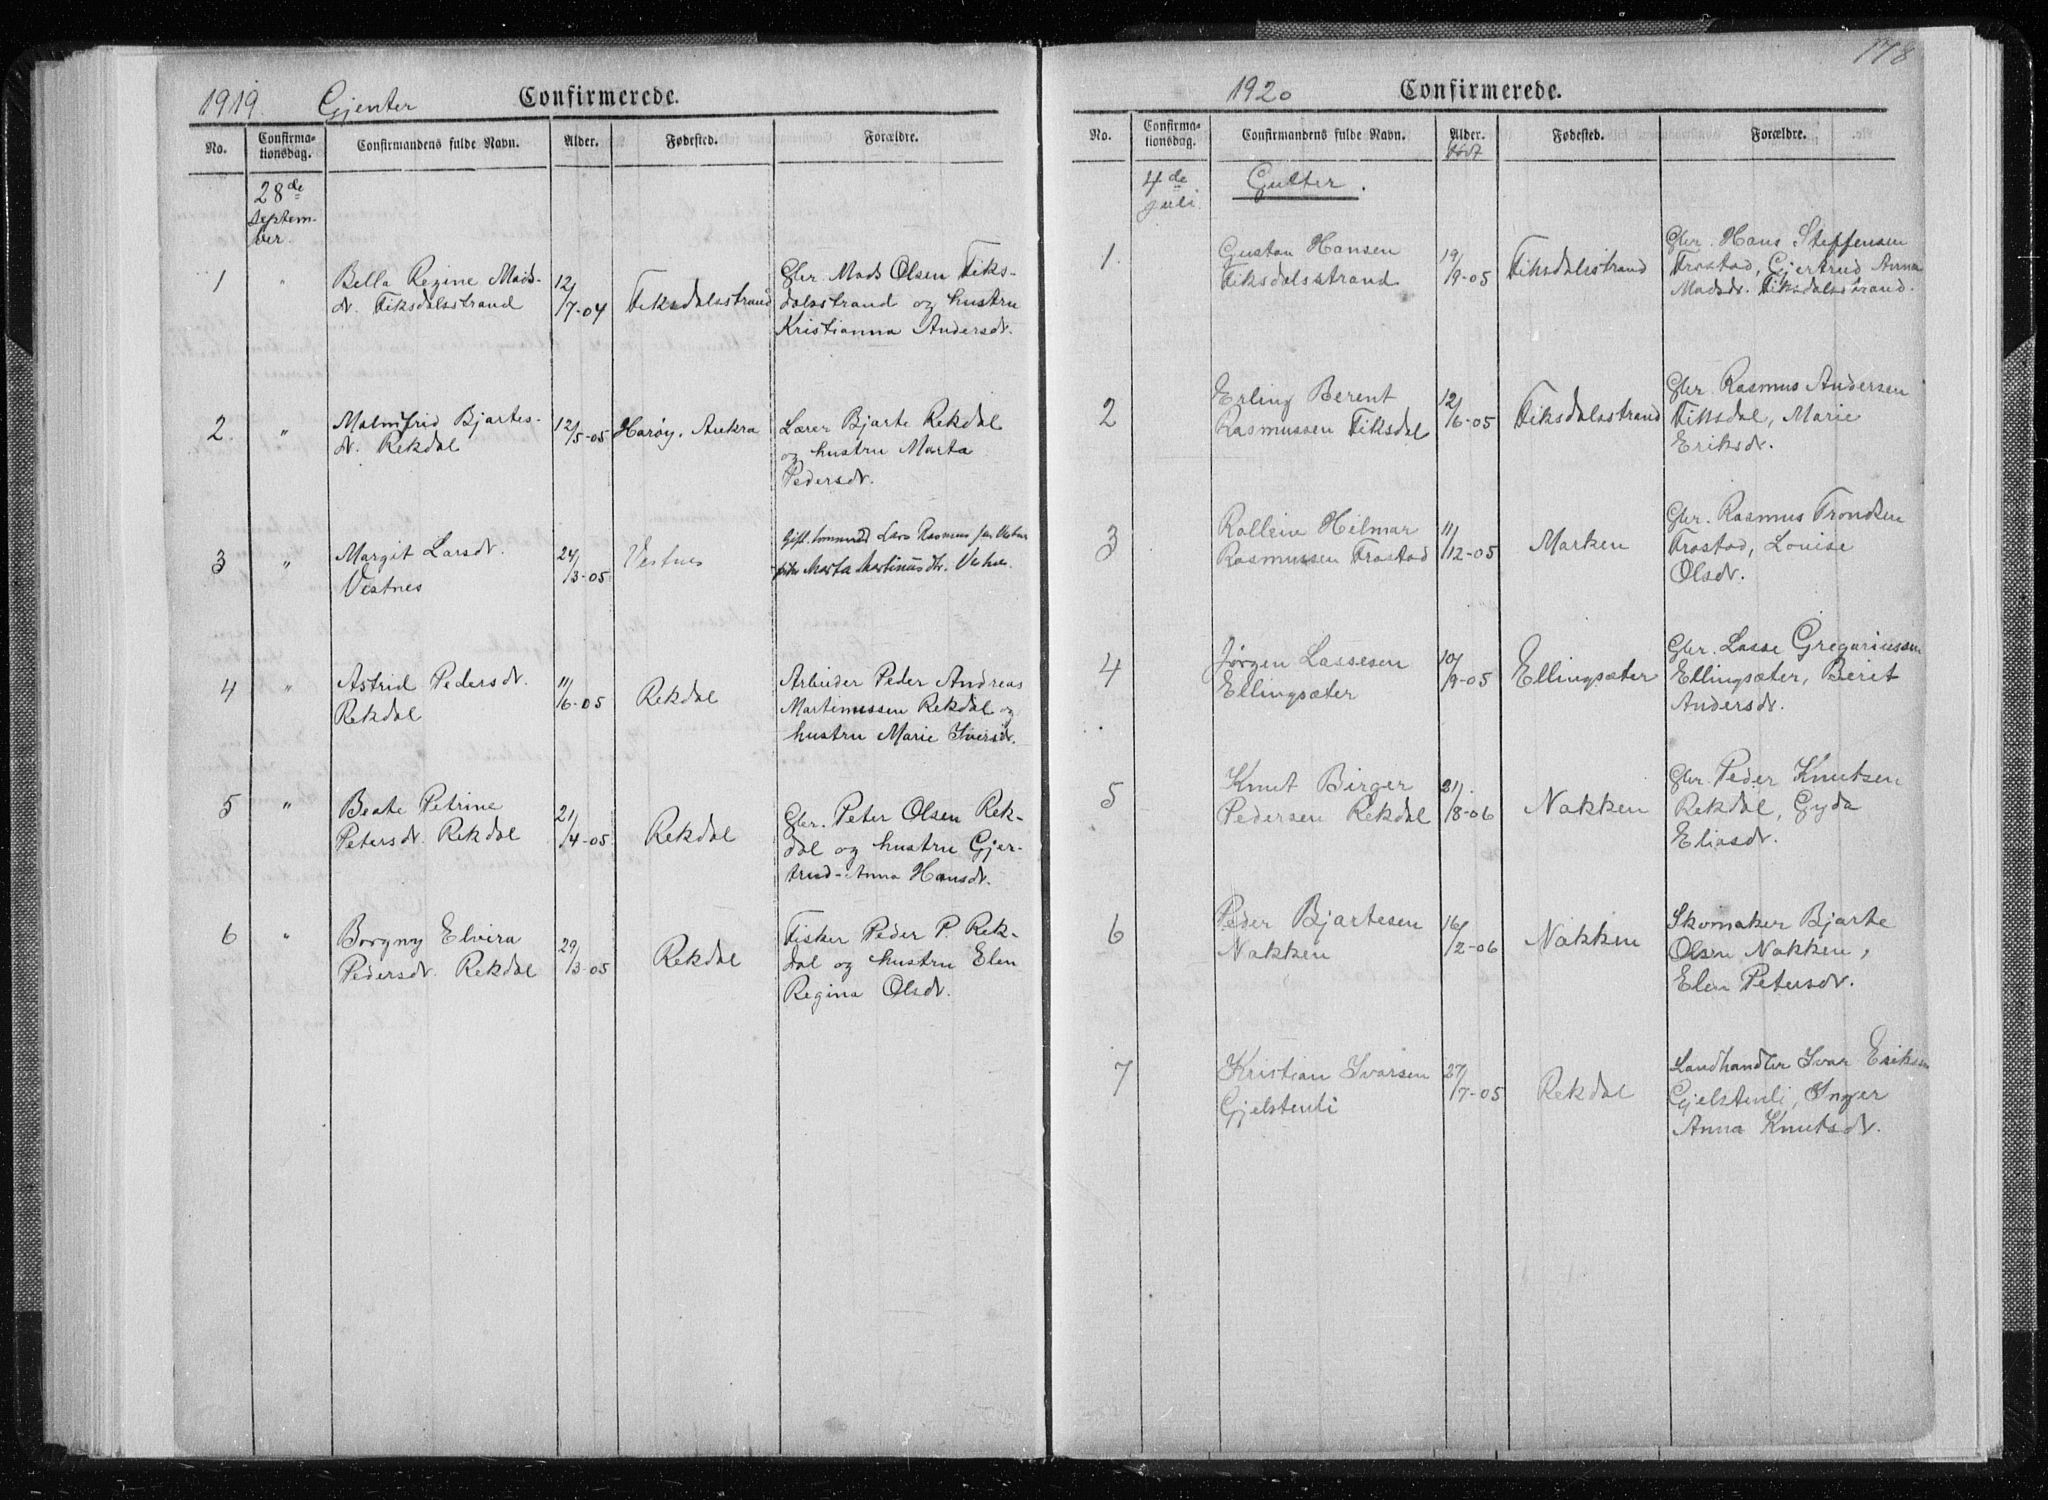 1919 Gjenter Confirmerede.
No. Confirma-tionsdag. Confirmandens fulde Navn. Alder. Fødested. Forældre.
28de
septem-
ber
1 " Bella Regine Mads- 12/7-04 Fiksdalsstrand Gbr. Mads Olsen Fiks-
dr. Fiksdalsstrand dalsstrand og hustru
Kristianna Andersdr.
2. " Malmfrid Bjartes- 12/5-05 Harøy, Aukra Lærer Bjarte Rekdal
dr. Rekdal og hustru Marta
Pedersdr.
3 " Margit Larsdr. 24/3-05 Vestnes Lars Rasmus
Vestnes Marta Martinusdtr.
4 " Astrid Pedersdr. 11/6-05 Rekdal Arbeider Peder Andreas
Rekdal Martinussen Rekdal og
hustru Marie Iversdr.
5 " Beate Petrine 21/4-05 Rekdal Gbr. Peter Olsen Rek-
Petersdr. Rekdal dal og hustru Gjer-
trud-Anna Hansdr.
6 " Borgny Elvira 29/3-05 Rekdal Fisker Peder P. Rek-
Pedersdr. Rekdal dal og hustru Elen
Regina Olsdr.
178
1920 Confirmerede.
No. Confirma-tionsdag. Confirmandens fulde Navn. Alder. født Fødested. Forældre.
4de Gutter.
juli
1. Gustav Hansen 19/9-05 Fiksdalsstrand Gbr. Hans Steffensen
Fiksdalsstrand Frostad, Gjertrud Anna
Madsdr. Fiksdalsstrand.
2 Erling Berent 12/6-05 Fiksdalsstrand Gbr. Rasmus Andersen
Rasmussen Fiksdal Fiksdal, Marie
Eriksdr.
3 Rollein Hilmar 11/12-05 Marken Gbr. Rasmus Trondsen
Rasmussen Frostad Frostad, Louise
Olsdr.
4 Jørgen Lassesen 10/9-05 Ellingsæter Gbr. Lasse Gregoriussen
Ellingsæter Ellingsæter, Berit
Andersdr.
5 Knut Birger 21/8-06 Nakken Gbr. Peder Knutsen
Pedersen Rekdal Rekdal, Gyda
Eliasdr.
6 Peder Bjartesen 16/2-06 Nakken Skomaker Bjarte
Nakken Olsen Nakken,
Elen Petersdr.
7 Kristian Ivarsen 27/7-05 Rekdal Landhandler Ivar Eriksen
Gjelstenli Gjelstenli, Inger
Anna Knutsdr.